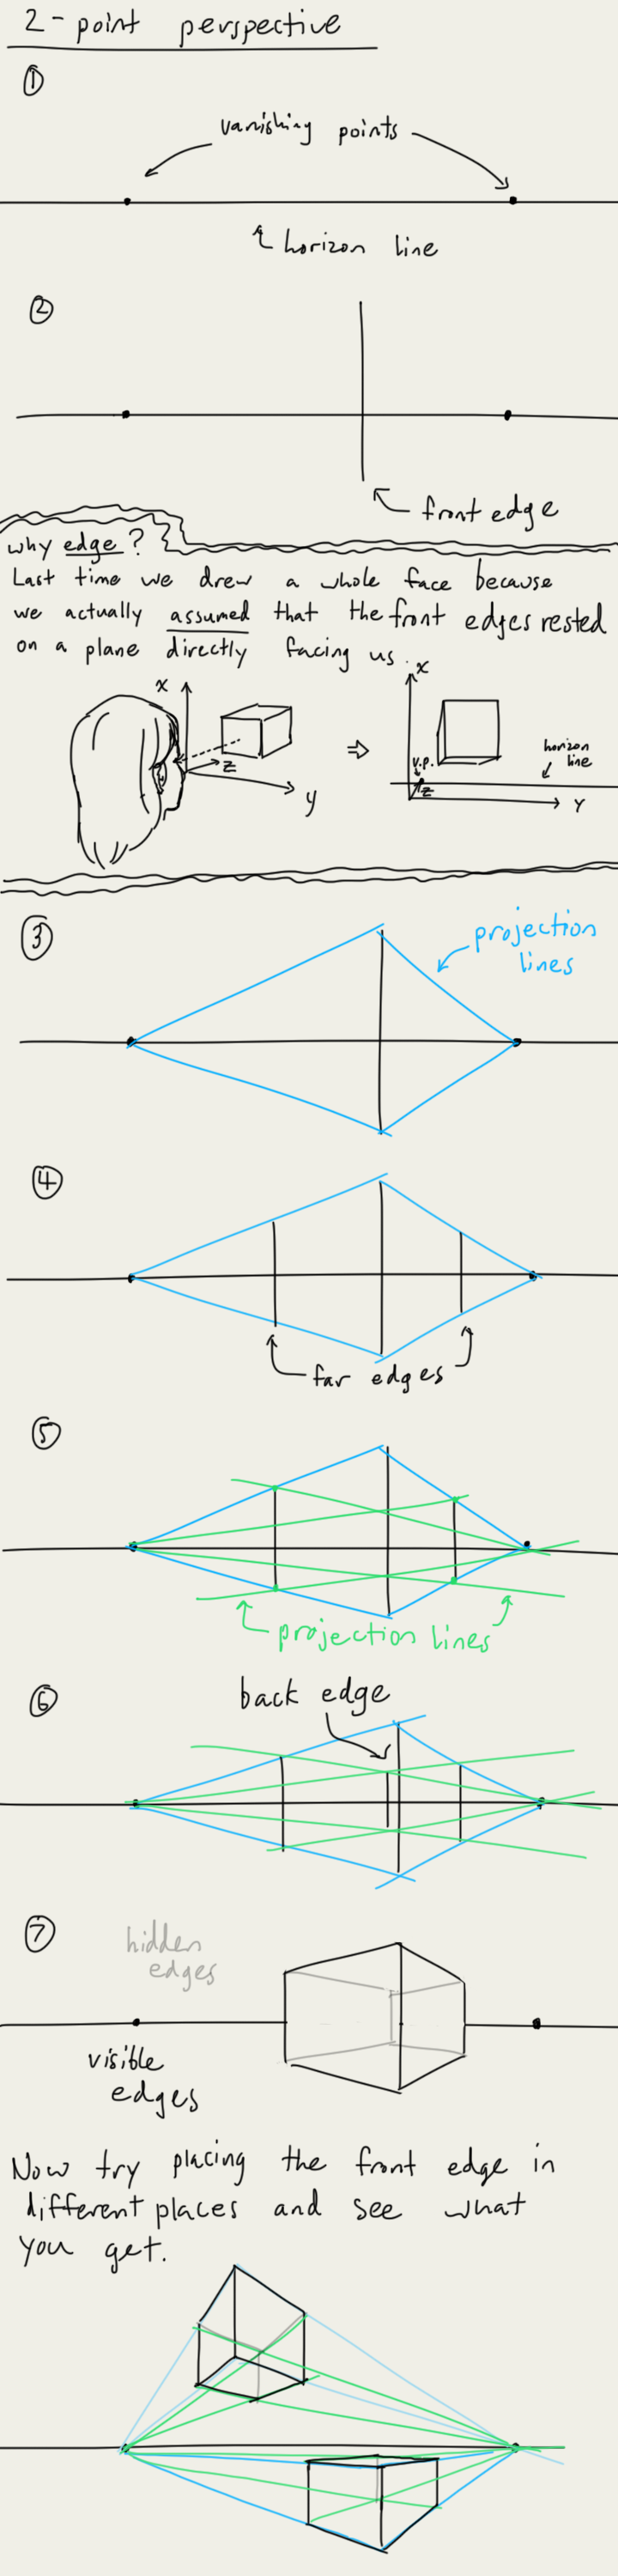 2-point perspective
①
vanishing points
horizon line
②
front edge
why edge?
Last time we drew a whole face because
we actually assumed that the front edges rested
on a plane directly facing us.
x
z
y
⇒
x
v.p.
z
horizon
line
Y
③
projection
lines
④
far edges
⑤
projection lines
⑥
back edge
⑦
hidden
edges
visible
edges
Now try placing the front edge in
different places and see what
you get.